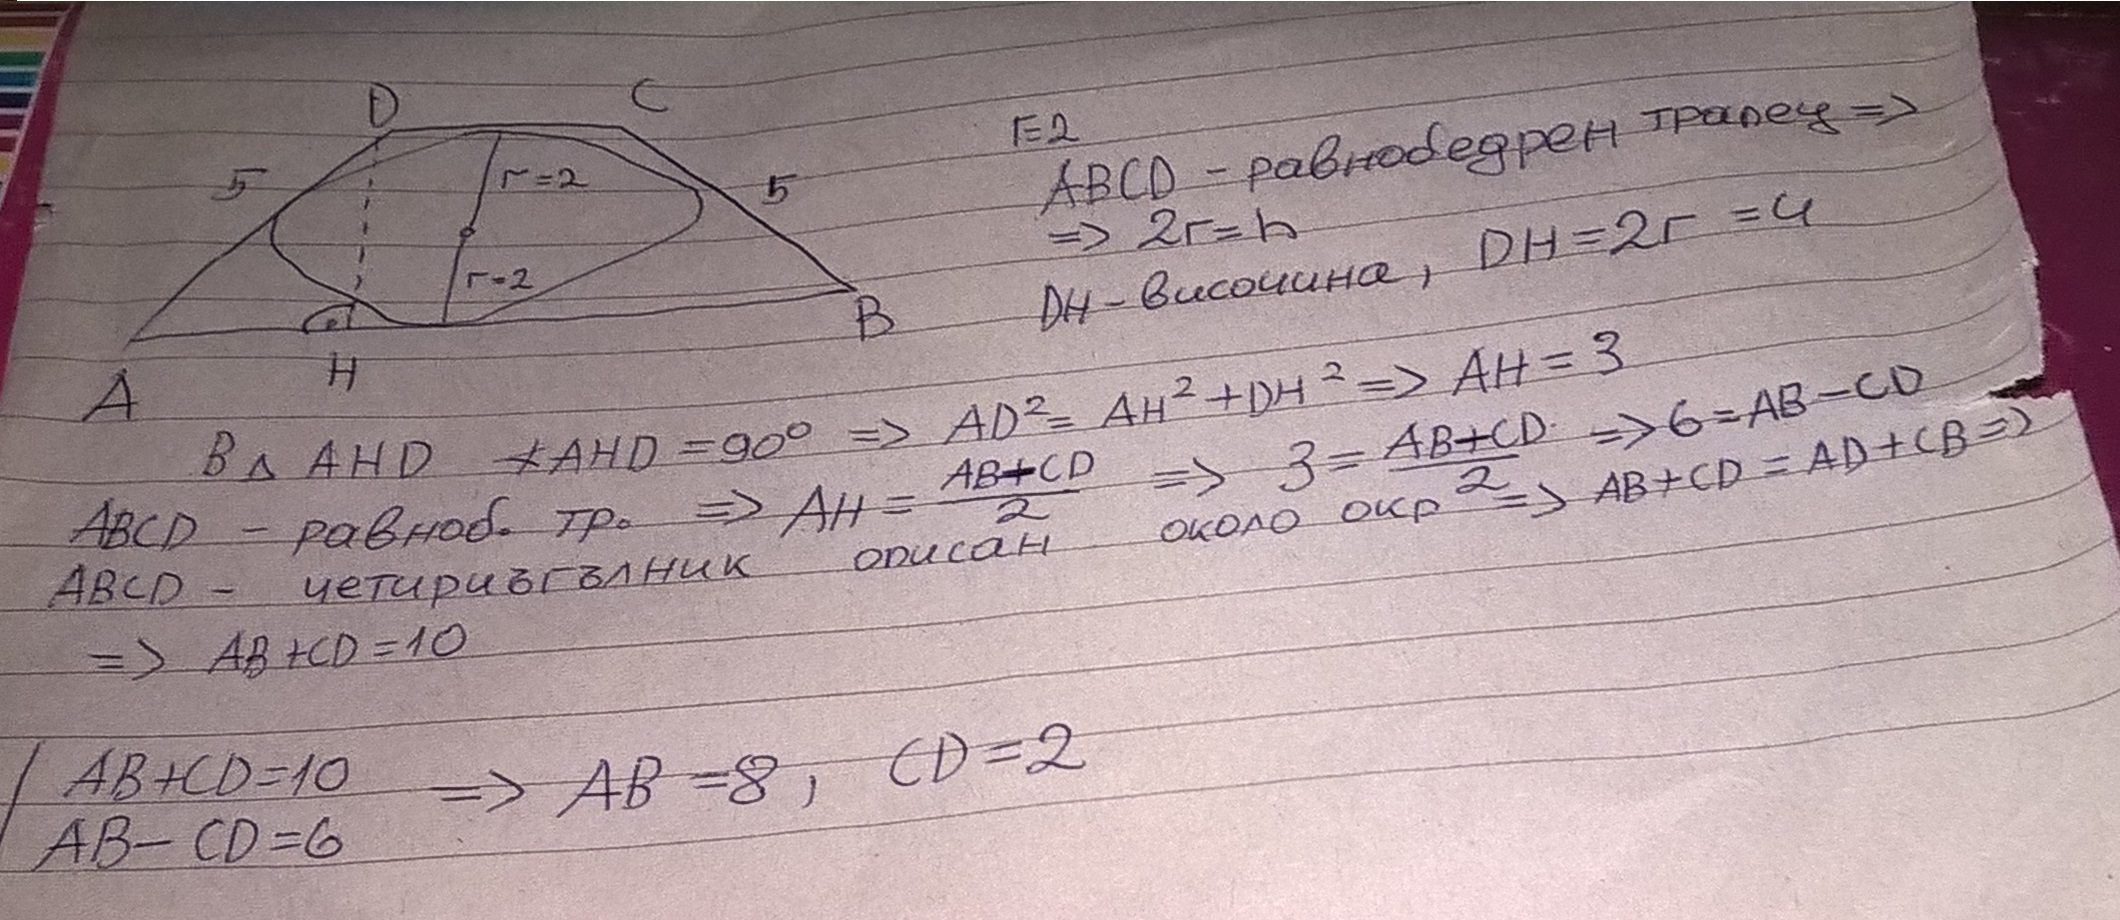 D C
5 r=2 5
r=2
A H B
r=2
ABCD - равнобедрен трапец =>
=> 2r=h
DH - височина, DH=2r=4
В △ AHD ∡AHD=90° => AD²=AH²+DH² => AH=3
ABCD - равноб. тр. => AH=(AB+CD)/2 => 3=(AB+CD)/2 => 6=AB-CD
ABCD - четириъгълник описан около окр => AB+CD=AD+CB =>
=> AB+CD=10
AB+CD=10 => AB=8, CD=2
AB-CD=6